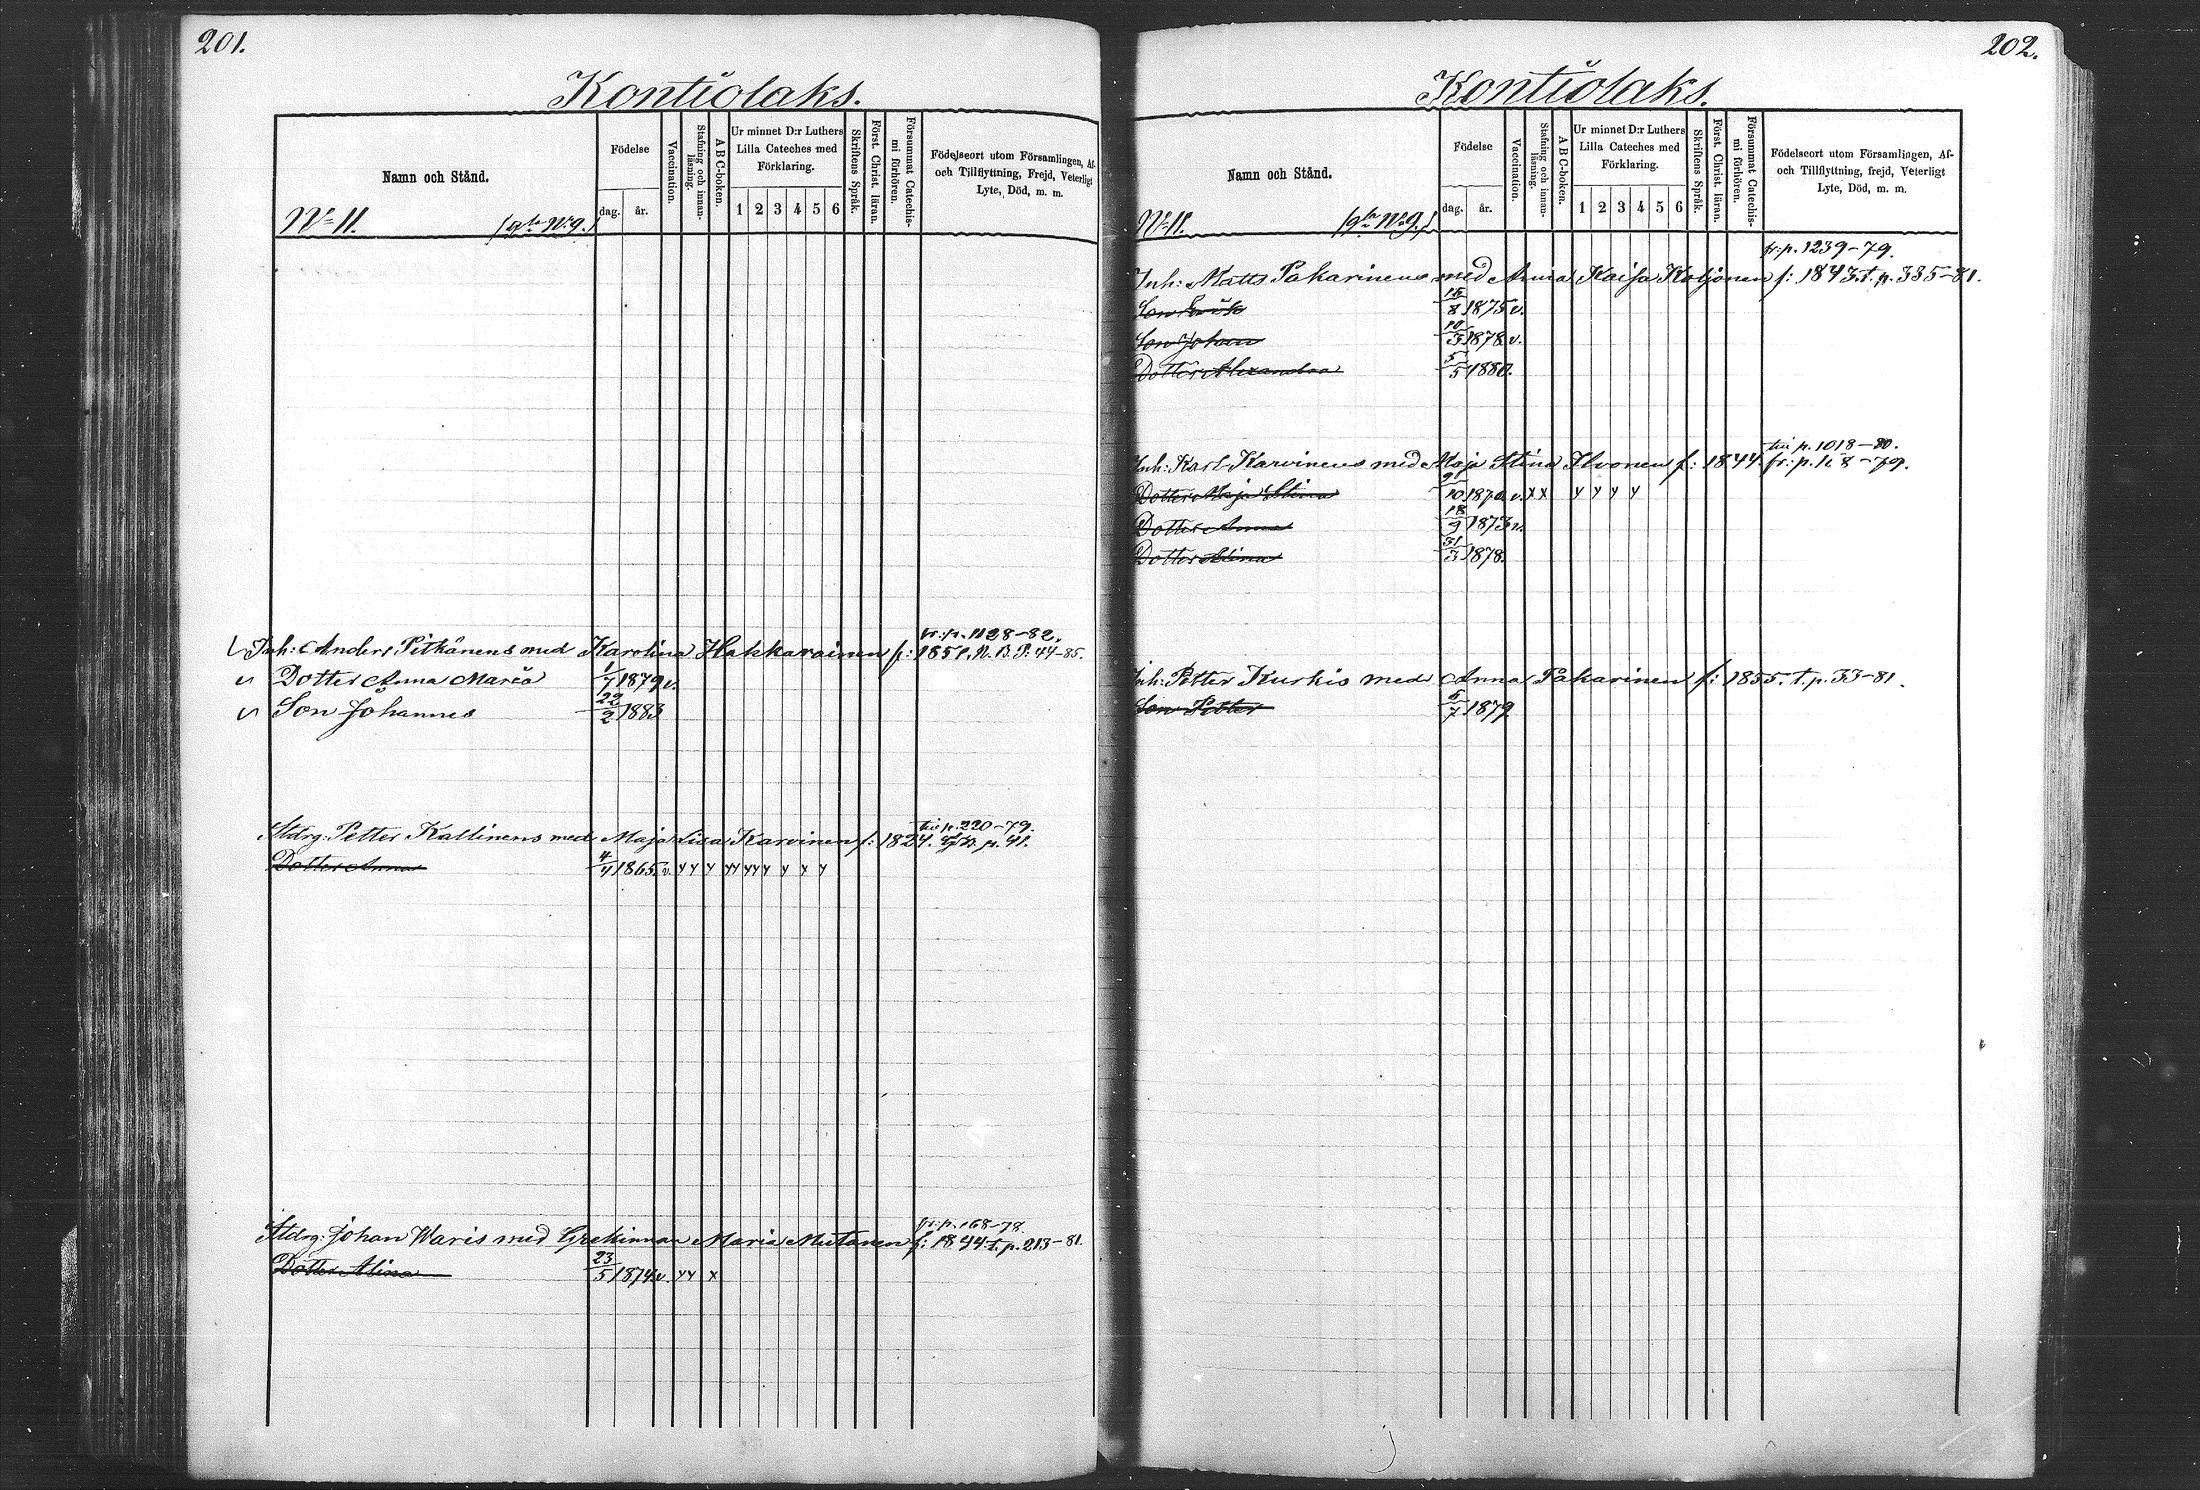 201.
Kontiolaks.
Namn och Stånd.
Födelse
dag.
år.
Vaccination.
Stafning och innan-
läsning.
A B C-boken.
Ur minnet D:r Luthers
Lilla Cateches med
Förklaring.
1 2 3 4 5 6
Skriftens Språk.
Först. Christ. läran.
Försummat Catechis-
mi förhören.
Födelseort utom Församlingen, Af-
och Tillflyttning, Frejd, Veterligt
Lyte, Död, m. m.
No 11. No 9.)
fr: p. 1128-82.
Inh: Anders Pitkänens med Karolina Hakkarainen f: 1851. N. B. P. 44-85.
Dotter Anna Maria 1/7 1879 v.
Son Johannes 22/2 1883
p. 220-79.
Stdrg: Petter Kallinens med Maja Lisa Karvinen f: 1824. p. 41.
Dotter Anna 4/7 1865. v. y y y y y y y y y y y y
fr: p. 168-78
Stdrg: Johan Waris med Maria Mutanen f: 1844 t. p. 213-81.
Dotter Alina 23/5 1874 v. y y x
202.
Kontiolaks.
Namn och Stånd.
Födelse
dag.
år.
Vaccination.
Stafning och innan-
läsning.
A B C-boken.
Ur minnet D:r Luthers
Lilla Cateches med
Förklaring.
1 2 3 4 5 6
Skriftens Språk.
Först. Christ. läran.
Försummat Catechis-
mi förhören.
Födelseort utom Församlingen, Af-
och Tillflyttning, frejd, Veterligt
Lyte, Död, m. m.
No 11. No 9.)
fr: p. 1239-79.
Inh: Matts Pakarinens med Anna Kaisa Kotjonen f: 1843. t. p. 335-81.
Son 8 1875 v.
Son Johan 10/3 1878 v.
Dotter Alexandra 5/5 1880.
p. 1018-80.
Inh: Karl Karvinens med Maja Stina Ilvonen f: 1844. fr: p. 79.
Dotter Maja Stina 10 1870 v. x x y y y y
Dotter Anna 18/9 1873 v.
Dotter Alina 31/3 1878.
Inh: Petter Kurkis med Anna Pakarinen f: 1855. t. p. 33-81.
Son Petter 6/7 1879